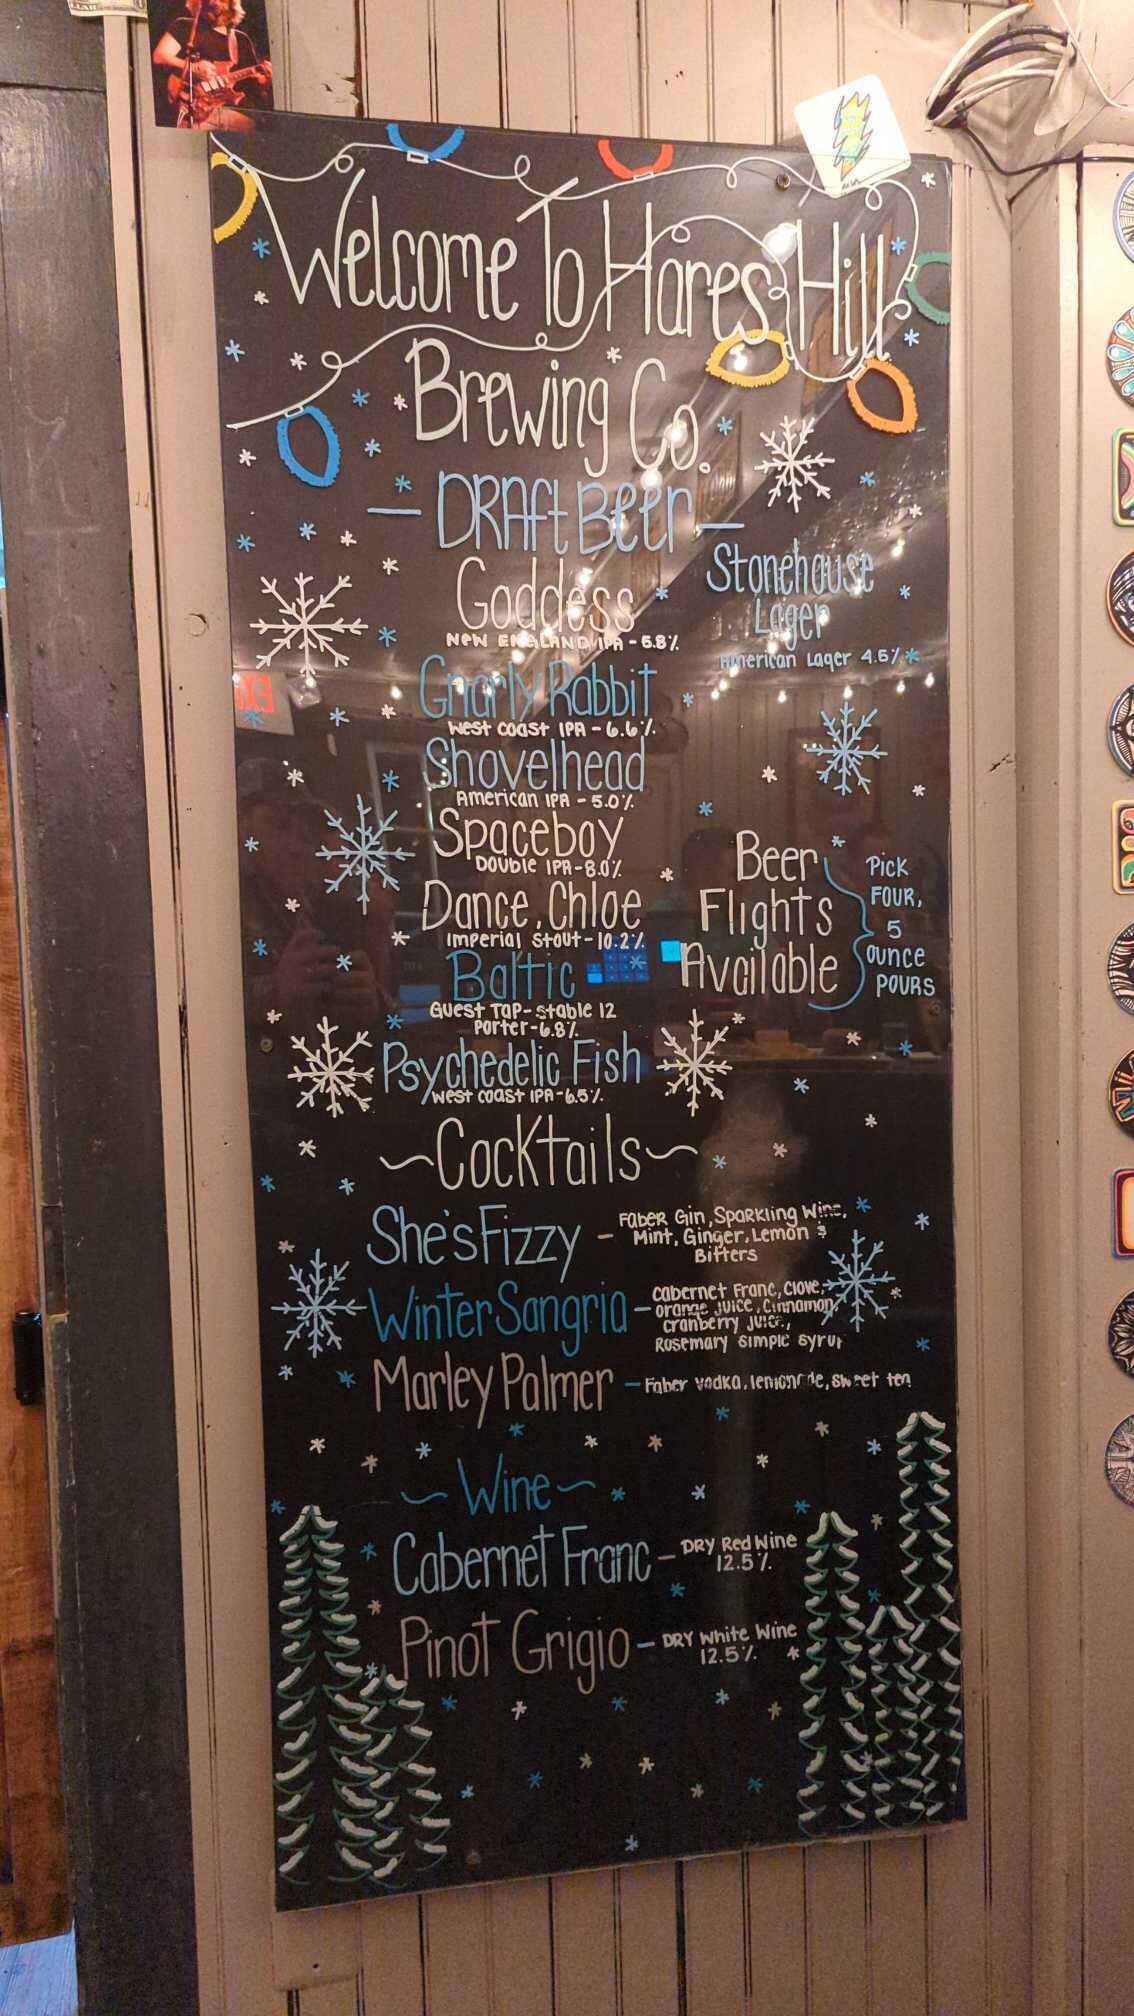 Welcome To Hares Hill
Brewing Co.
— DRAFT Beer —
Goddess
NEW ENGLAND IPA - 6.8%
Gnarly Rabbit
West coast IPA - 6.6%
Shovelhead
American IPA - 5.0%
Spaceboy
Double IPA - 8.0%
Dance, Chloe
Imperial Stout - 10.2%
Baltic
Guest Tap - Stable 12
Porter - 6.8%
Psychedelic Fish
West coast IPA - 6.5%
Stonehouse
Lager
American Lager 4.5%
Beer
Flights
Available
Pick
FOUR,
5
ounce
POURS
~Cocktails~
She's Fizzy -
Faber Gin, Sparkling Wine,
Mint, Ginger, Lemon &
Bitters
Winter Sangria -
Cabernet Franc, Clove,
orange juice, Cinnamon,
cranberry juice,
Rosemary simple syrup
Marley Palmer - Faber vodka, lemonade, sweet tea
~ Wine ~
Cabernet Franc - DRY Red Wine
12.5%
Pinot Grigio - DRY White Wine
12.5%